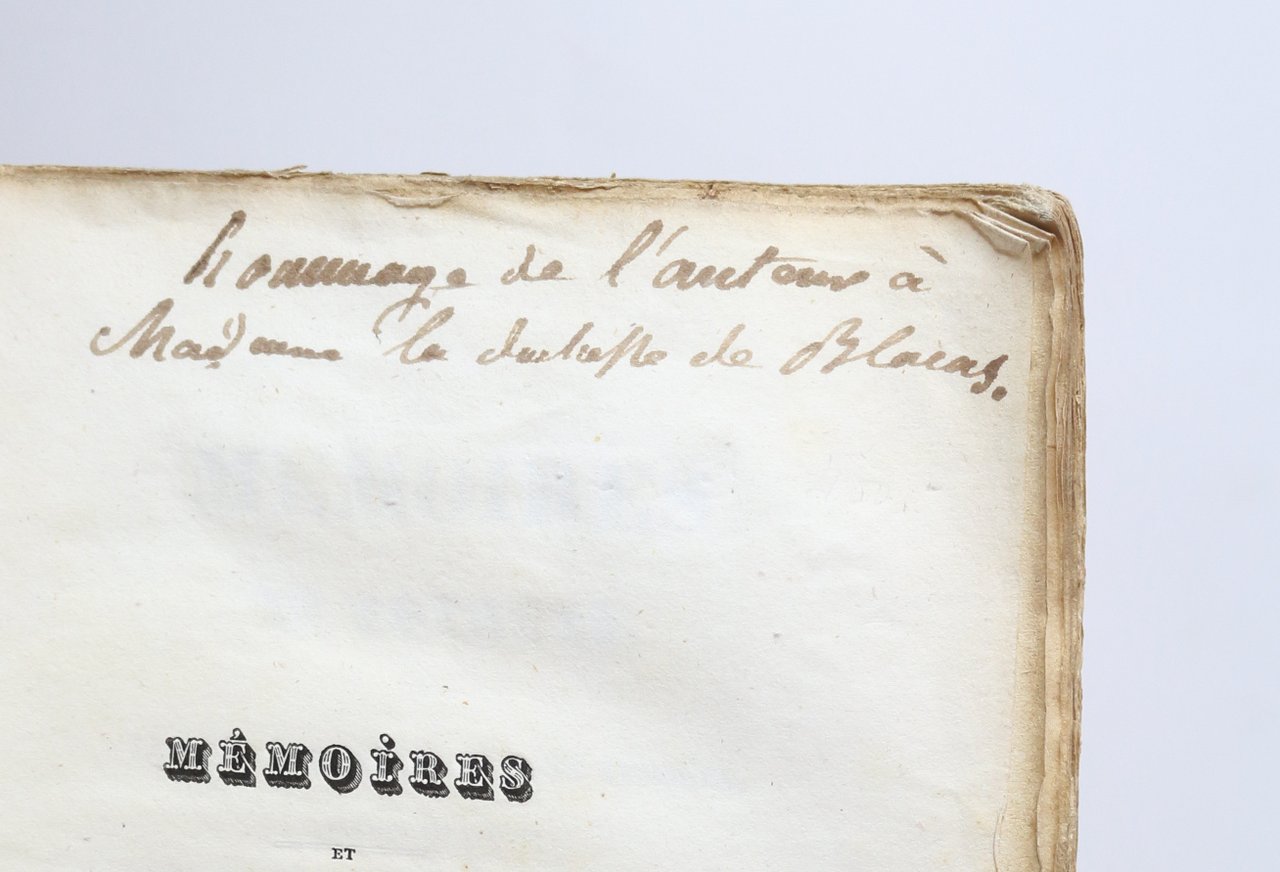 hommage de l'auteur à
Madame la duchesse de Blacas.
MÉMOIRES
ET